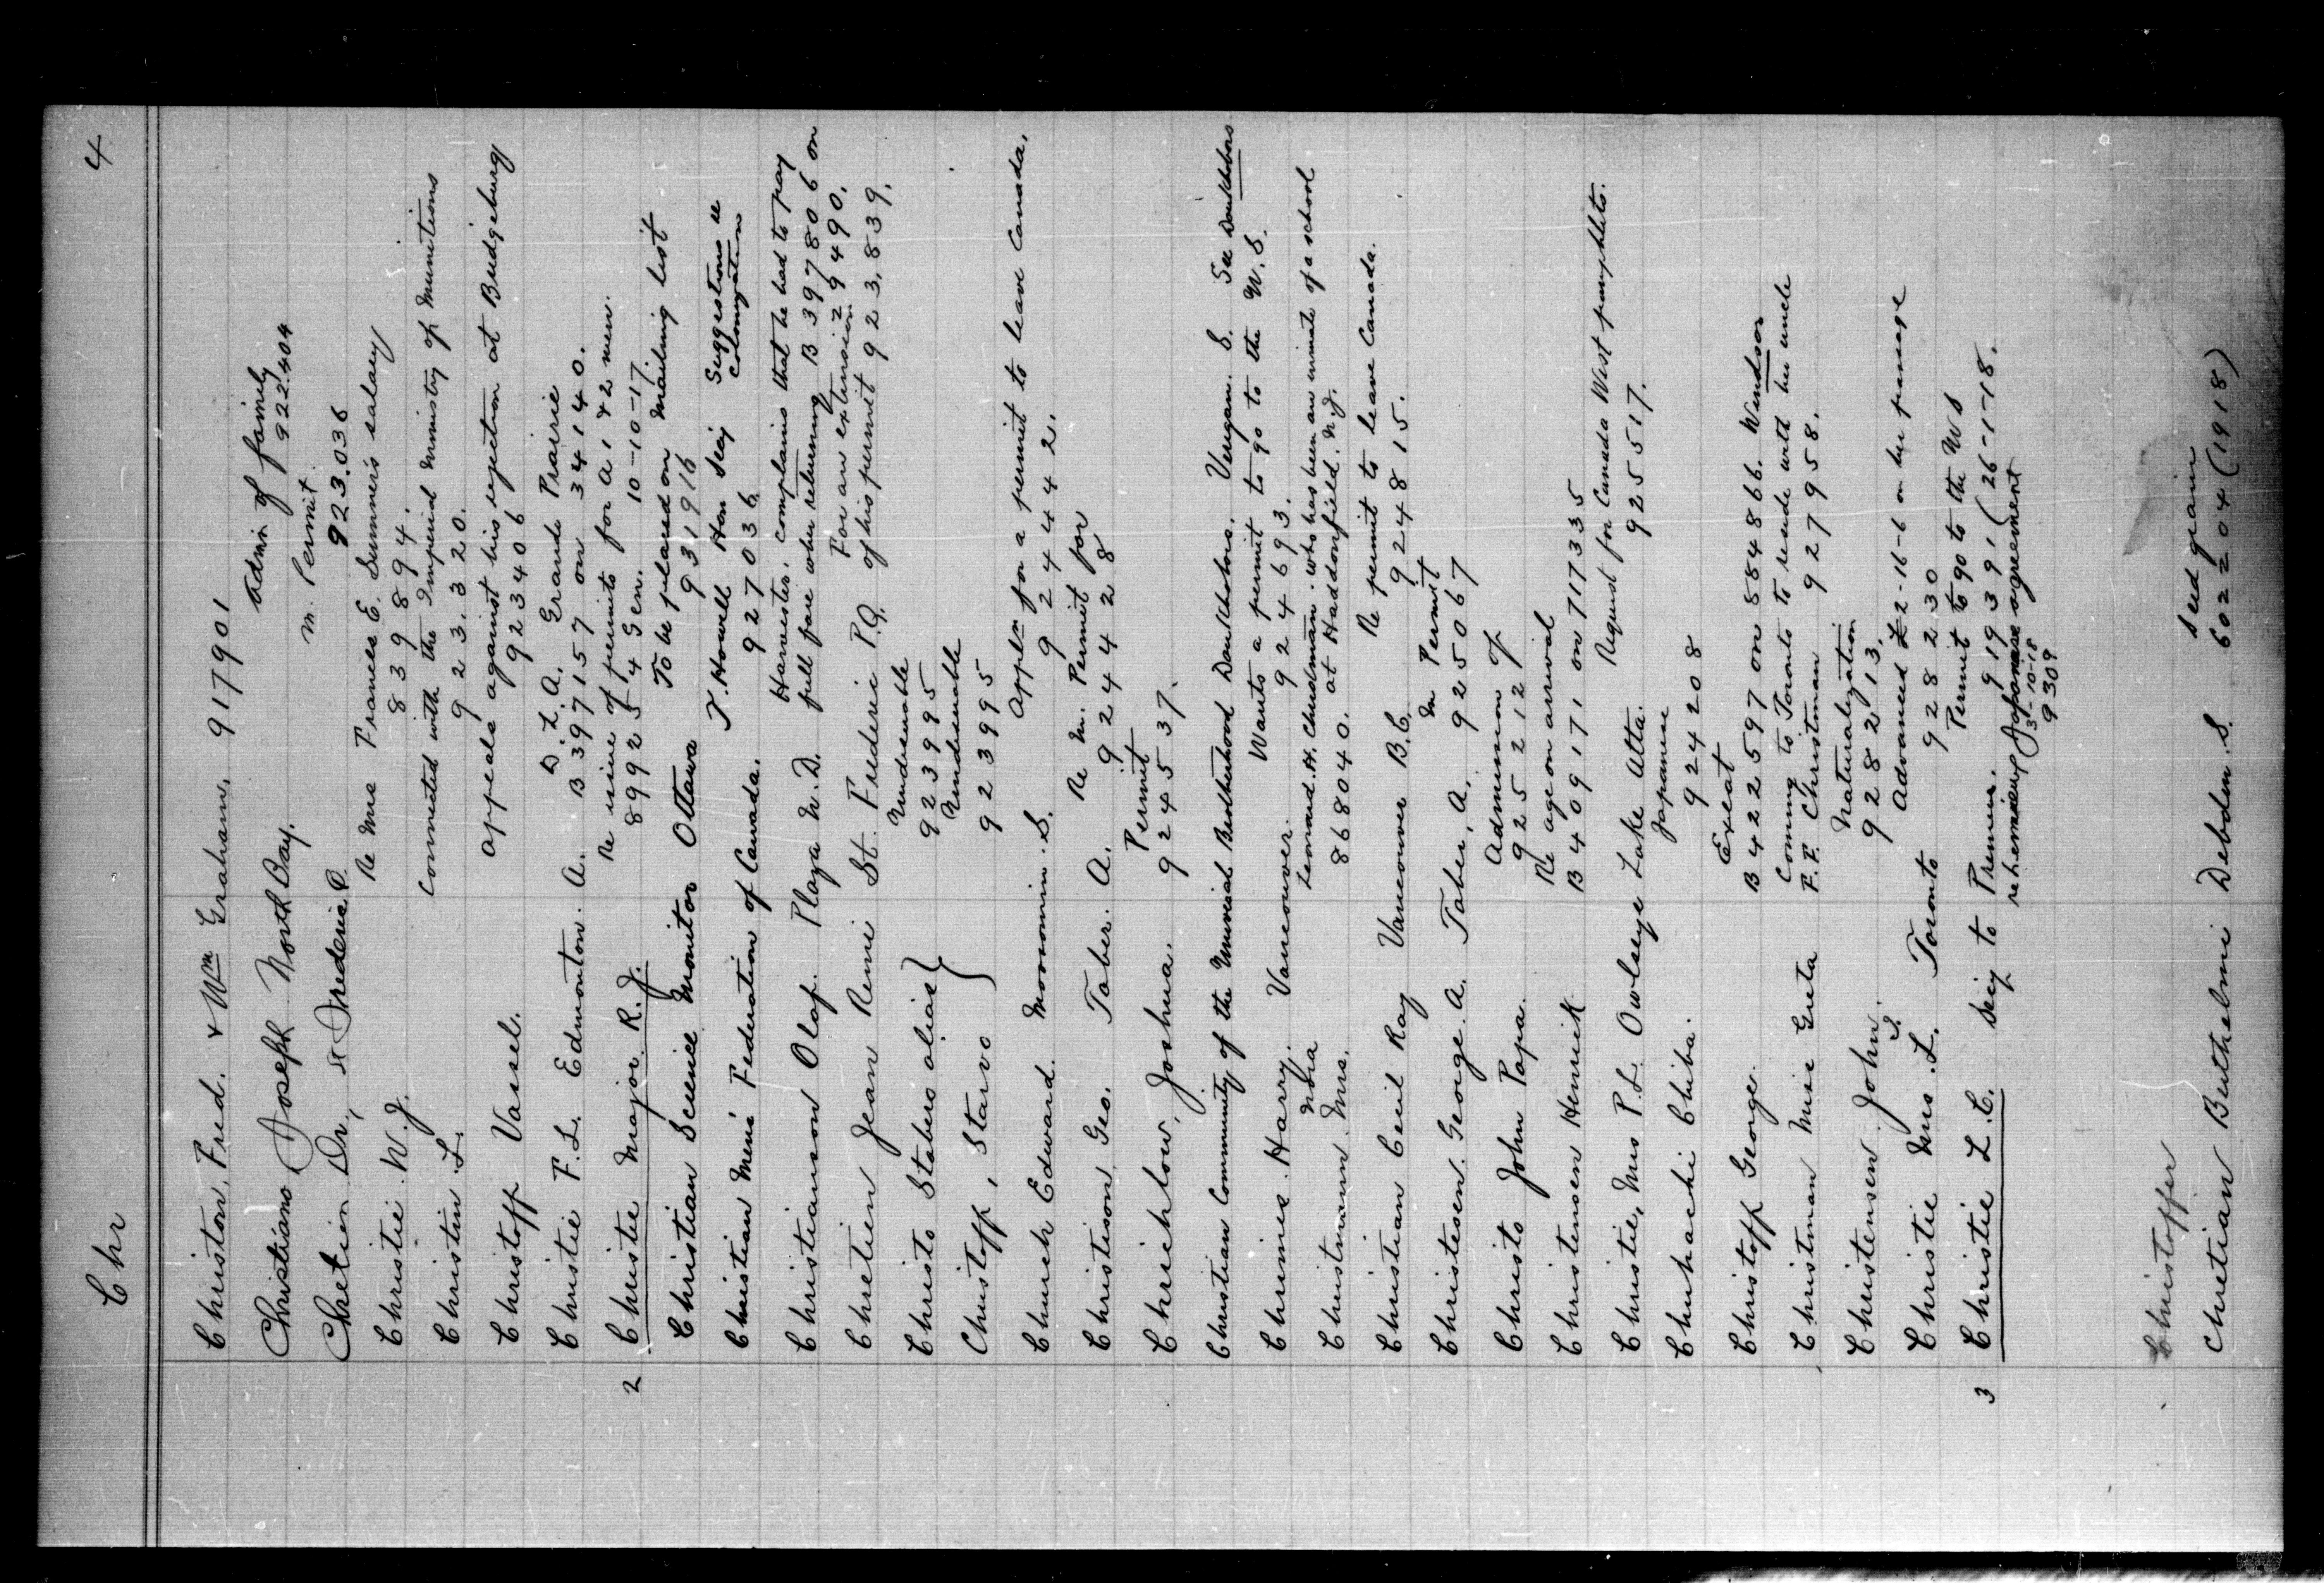 Chr 4
Christon, Fred. & Wm Graham. 917901
Christians Joseph North Bay. Admn of family 922.404
Chretien Dr., St Frederic P. M. Permit 923.036
Christie W. J. Re Mrs Frances E. Sumner's salary
83989 4.
Christin L. connected with the Imperial Ministry of Munitions
923.320.
Christoff Vassel. appeals against his rejection at Bridgeburg
923406
Christie F. L. Edmonton. A. D.L.A. Grande Prairie
B 397157 on 34140.
2 Christie Major R. J. Re issue of permits for A 1 & 2 men.
899254 Gen. 10-10-17.
Christian Science Monitor Ottawa To be placed on mailing list
931916
Christian Men's Federation of Canada. T. Howell Hon Secy Suggestions re colonization
927036
Christianson Olaf. Plaza N. D. Harvester. complains that he had to pay
full fare when returning B 397806 on 29490.
Chretien Jean Remi St. Frederic P.Q. For an extension
of his permit 923.839.
Christo Stabero alias } Undesirable
923995
Christoff, Starvo Undesirable
923995
Church Edward. Moosomin. S. Appln for a permit to leave Canada.
924442.
Christison Geo. Taber. A. Re M. Permit for
924428
Chrichlow, Joshua. Permit
924537.
Christian Community of the Universal Brotherhood Doukhobors. Veregin. S. See Doukhobors
Chrimes. Harry. Vancouver. Wants a permit to go to the U.S.
924693.
Christmann. Nora Mrs. Leonard. H. Christmann. who has been an inmate of a school
868040. at Haddonfield. N.J.
Christian Cecil Ray Vancouver B.C. Re permit to leave Canada.
924815.
Christesen. George. A. Taber, A. M Permit
925067
Christo John Papa. Admission of
925212
Christensen Henrick Re age on arrival
B 409171 on 717335
Christie, Mrs P. L. Owlseye Lake Alta. Request for Canada West pamphlets.
925517.
Chuhachi Chiba. Japanese
924208
Christoff George. Exeat
B 422597 on 884866. Windsor
Christman Miss Greta Coming to Toronto to reside with her uncle
F. F. Christman 927958.
Christensen John. Naturalization
928213.
Christie Mrs. L. S. Toronto Advanced £2-16-6 on her passage
928230
3 Christie L. C. Secy to Premier. Permit to go to the U S
919391 (26-1-18.
re hemieux Japanese agreement
3-10-18
9309
Christoffer
Chretian Buthelmi Debden. S. seed grain
602204 (1918)